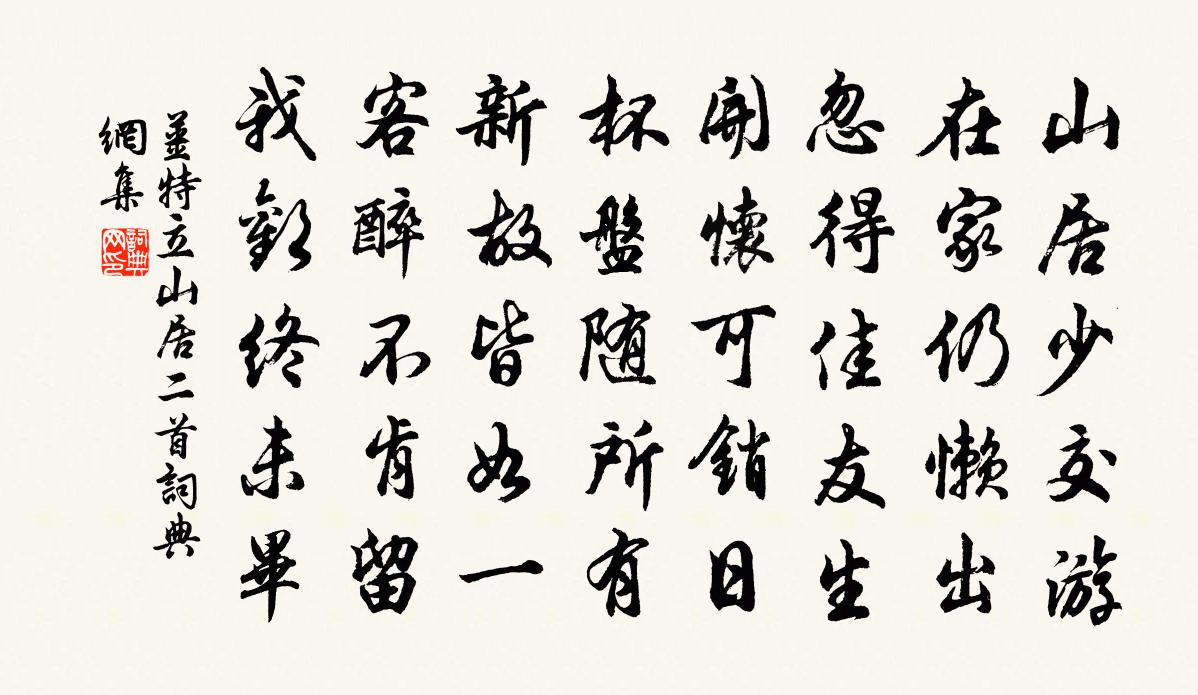 山居少交游
在家仍懶出
忽得佳友生
開懷可銷日
杯盤随所有
新故皆如一
客醉不肯留
我歡終未畢
薑特立山居二首詞典
網集
詞典
网印